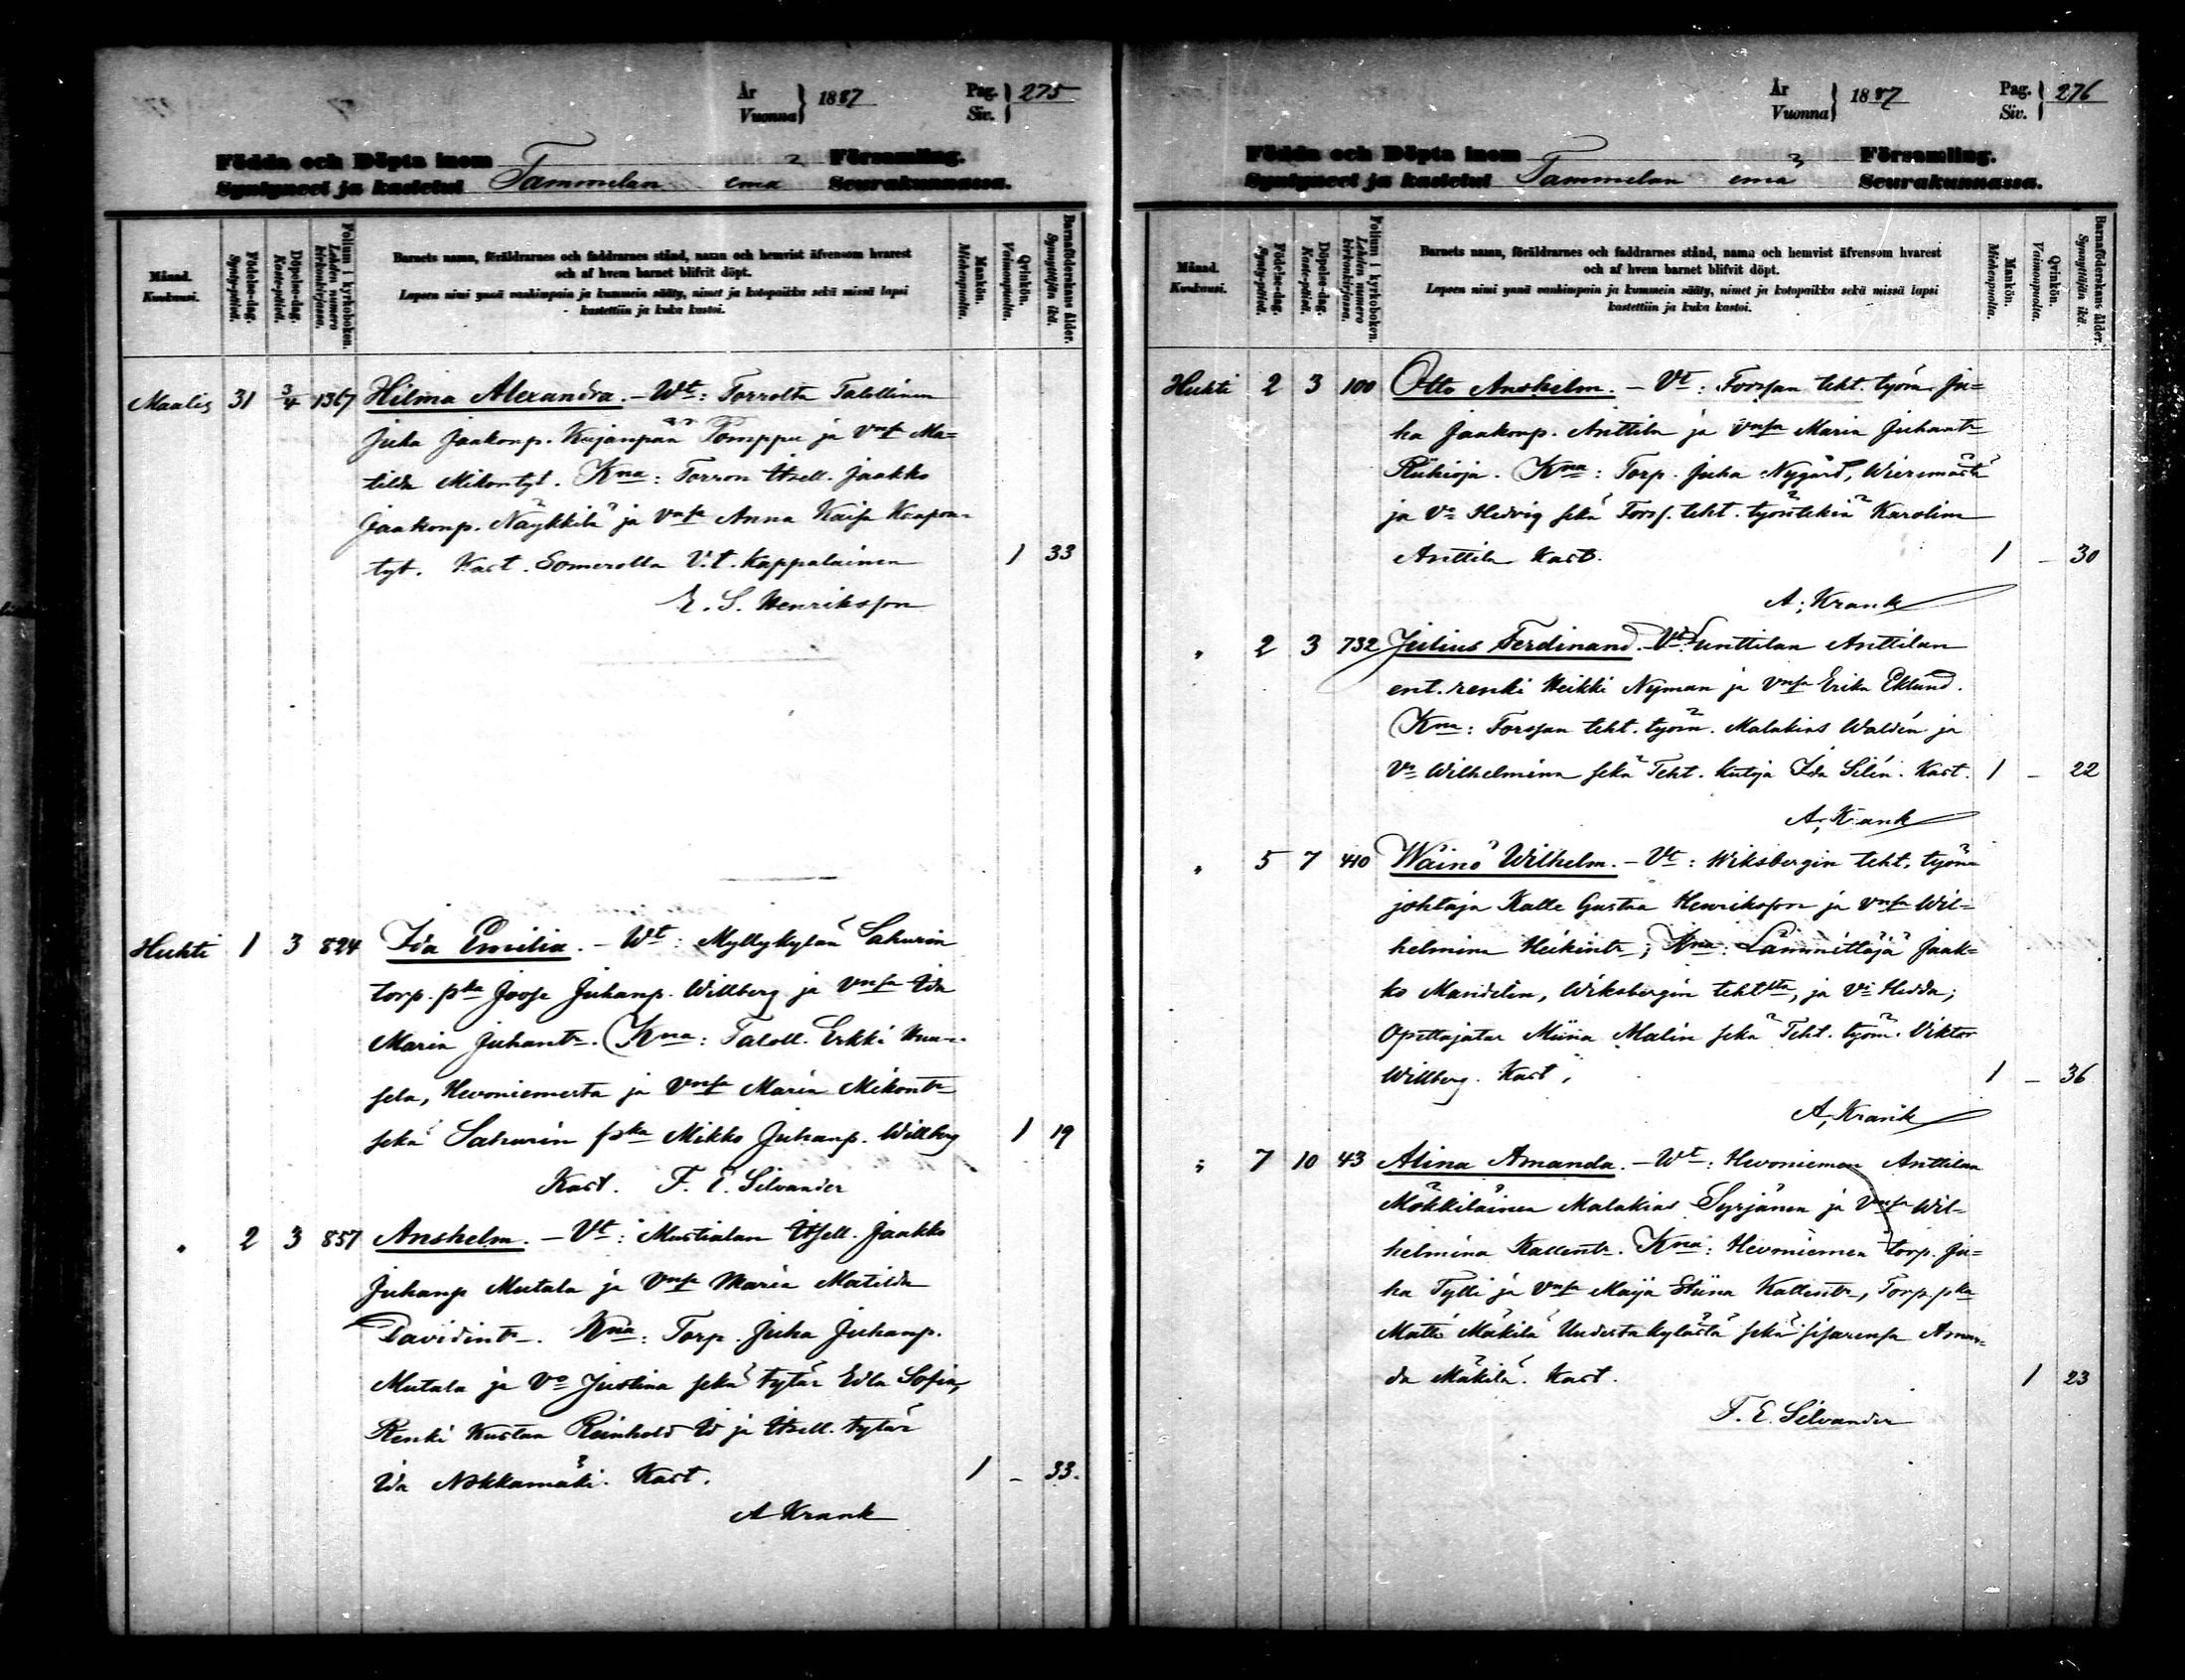 År
Vuonna } 1887
Pag.
Siv. } 275
Födda och Döpta inom Församling.
Syntyneet ja kastetut Tammelan emä Seurakunnassa.
Månad.
Kuukausi.
Födelse-dag.
Synty-päivä.
Döpelse-dag.
Kaste-päivä.
Folium i kyrkoboken.
Lehden numero kirkonkirjassa.
Barnets namn, föräldrarnes och faddrarnes stånd, namn och hemvist äfvensom hvarest
och af hvem barnet blifvit döpt.
Lapsen nimi ynnä vanhimpain ja kummein sääty, nimet ja kotopaikka sekä missä lapsi
kastettiin ja kuka kastoi.
Mankön.
Miehenpuolia.
Qvinkön.
Vaimonpuolia.
Barnaföderskans ålder.
Synnyttäjän ikä.
Maalis 31 3/4 1367 Hilma Alexandra. – Wt: Torrolta Talollinen
Juha Jaakonp. Kujanpää Pomppu ja Vnsa Ma=
tilda Mikontyt. Kna: Torron Itsell. Jaakko
Jaakonp. Näykkilä ja Vnsa Anna Kaisa
tyt. Kast. Somerolla V.t. Kappalainen 1 33
E. S. Henriksson
Huhti 1 3 824 Ida Emilia. – Wt: Myllykylän Sahurin
torp. pka Joose Juhanp. Willberg ja Vnsa Ida
Maria Juhantr. Kna: Taloll. Erkki
sela, Hevoniemerta ja Vnsa Maria Mikontr
sekä Sahurin pka Mikko Juhanp. Willberg 1 19
Kast. F. E. Silvander
" 2 3 857 Anshelm. – Vt: Mustialan Itsell. Jaakko
Juhanp Mutala ja Vnsa Maria Matilda
Davidintr. Kna: Torp. Juha Juhanp.
Mutala ja Vo Justina sekä tytär Edla Sofia,
Renki Kustaa Reinhold ja Itsell. tytär
Ida Nokkamäki. Kast. 1 – 33.
A Krank
År
Vuonna } 1887
Pag.
Siv. } 276
Födda och Döpta inom Församling.
Syntyneet ja kastetut Tammelan emä Seurakunnassa.
Månad.
Kuukausi.
Födelse-dag.
Synty-päivä.
Döpelse-dag.
Kaste-päivä.
Folium i kyrkoboken.
Lehden numero kirkonkirjassa.
Barnets namn, föräldrarnes och faddrarnes stånd, namn och hemvist äfvensom hvarest
och af hvem barnet blifvit döpt.
Lapsen nimi ynnä vanhimpain ja kummein sääty, nimet ja kotopaikka sekä missä lapsi
kastettiin ja kuka kastoi.
Mankön.
Miehenpuolia.
Qvinkön.
Vaimonpuolia.
Barnaföderskans ålder.
Synnyttäjän ikä.
Huhti 2 3 100 Otto Anshelm. – Vt: Forssan teht. työm. Ju=
ha Jaakonp. Anttila ja Vnsa Maria Juhantr
Riihioja. Kna: Torp. Juha Nygård, Wieremästä
ja Vo Hedvig sekä Forss. teht. työntekiä Karolina
Anttila Kast. 1 – 30
A. Krank
" 2 3 732 Julius Ferdinand. – Vt: Sunttilan Anttilan
ent. renki Heikki Nyman ja Vnsa Erika Eklund.
Kna: Forssan teht. työm. Malakias Waldén ja
Vo Wilhelmina sekä Teht. kutoja Ida Silén. Kast. 1 – 22
A. Krank
" 5 7 410 Wäinö Wilhelm. – Vt: Wiksbergin teht. työn
johtaja Kalle Gustaa Henriksson ja Vnsa Wil=
helmina Heikintr; Kna: Lämmittäjä Jaak=
ko Mandelin, Wiksbergin tehtta, ja Vo Hedda;
Opettajatar Miina Malin sekä Teht. työm. Viktor
Willberg. Kast. 1 – 36
A. Krank
" 7 10 43 Alina Amanda. – Wt: Hevoniemen Anttilan
Mökkiläinen Malakias Syrjänen ja Vnsa Wil=
helmina Kallentr. Kna: Hevoniemen torp. Ju=
ha Tylli ja Vnsa Maija Stiina Kallentr, Torp. pka
Matti Mäkilä Uudestakylästä sekä sisarensa Aman=
da Mäkilä. Kast. 1 23
F. E. Silvander